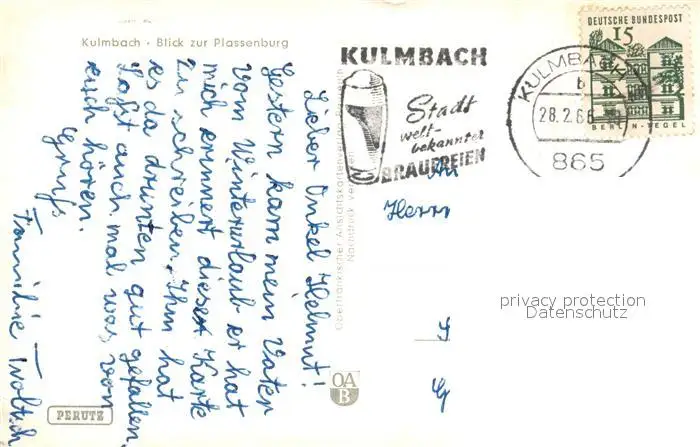 Kulmbach · Blick zur Plassenburg
Lieber Onkel Helmut!
Gestern kam mein Vater
vom Winterurlaub er hat
mich erinnert diese Karte
zu schreiben, Ihm hat
es da drunten gut gefallen,
Laßt auch mal was, von
euch hören.
Gruß
Familie
PERUTZ
Oberfränkischer Ansichtskartenverlag
Nachdruck
OA
B
KULMBACH
Stadt
welt-
bekannter
BRAUEREIEN
KULMBACH
b
28.2.66
865
DEUTSCHE BUNDESPOST
15
BERLIN-TEGEL
An
Herrn
privacy protection
Datenschutz